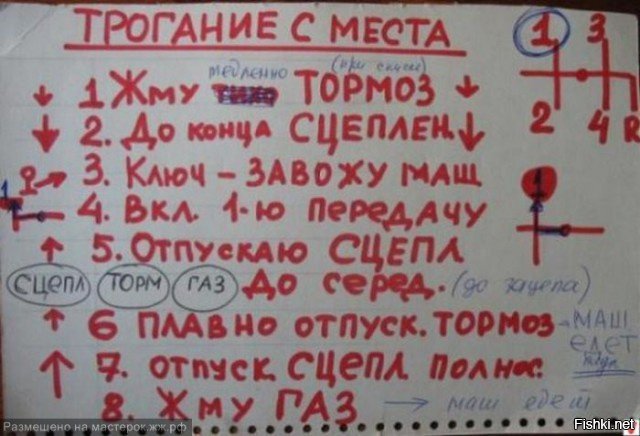 ТРОГАНИЕ С МЕСТА
1 3
2 4 R
медленно (при спуске)
1 Жму тихо ТОРМОЗ
2. До конца СЦЕПЛЕН.
3. Ключ – ЗАВОЖУ МАШ
1 4. Вкл. 1-ю передачу
1
5. Отпускаю СЦЕПЛ
СЦЕПЛ ТОРМ ГАЗ До серед. (до зацепа)
6 ПЛАВНО ОТПУСК. ТОРМОЗ - МАШ
едет
7. отпуск СЦЕПЛ полнос.
8. Жму ГАЗ → маш едет
Размещено на мастерок.жж.рф
Fishki.net